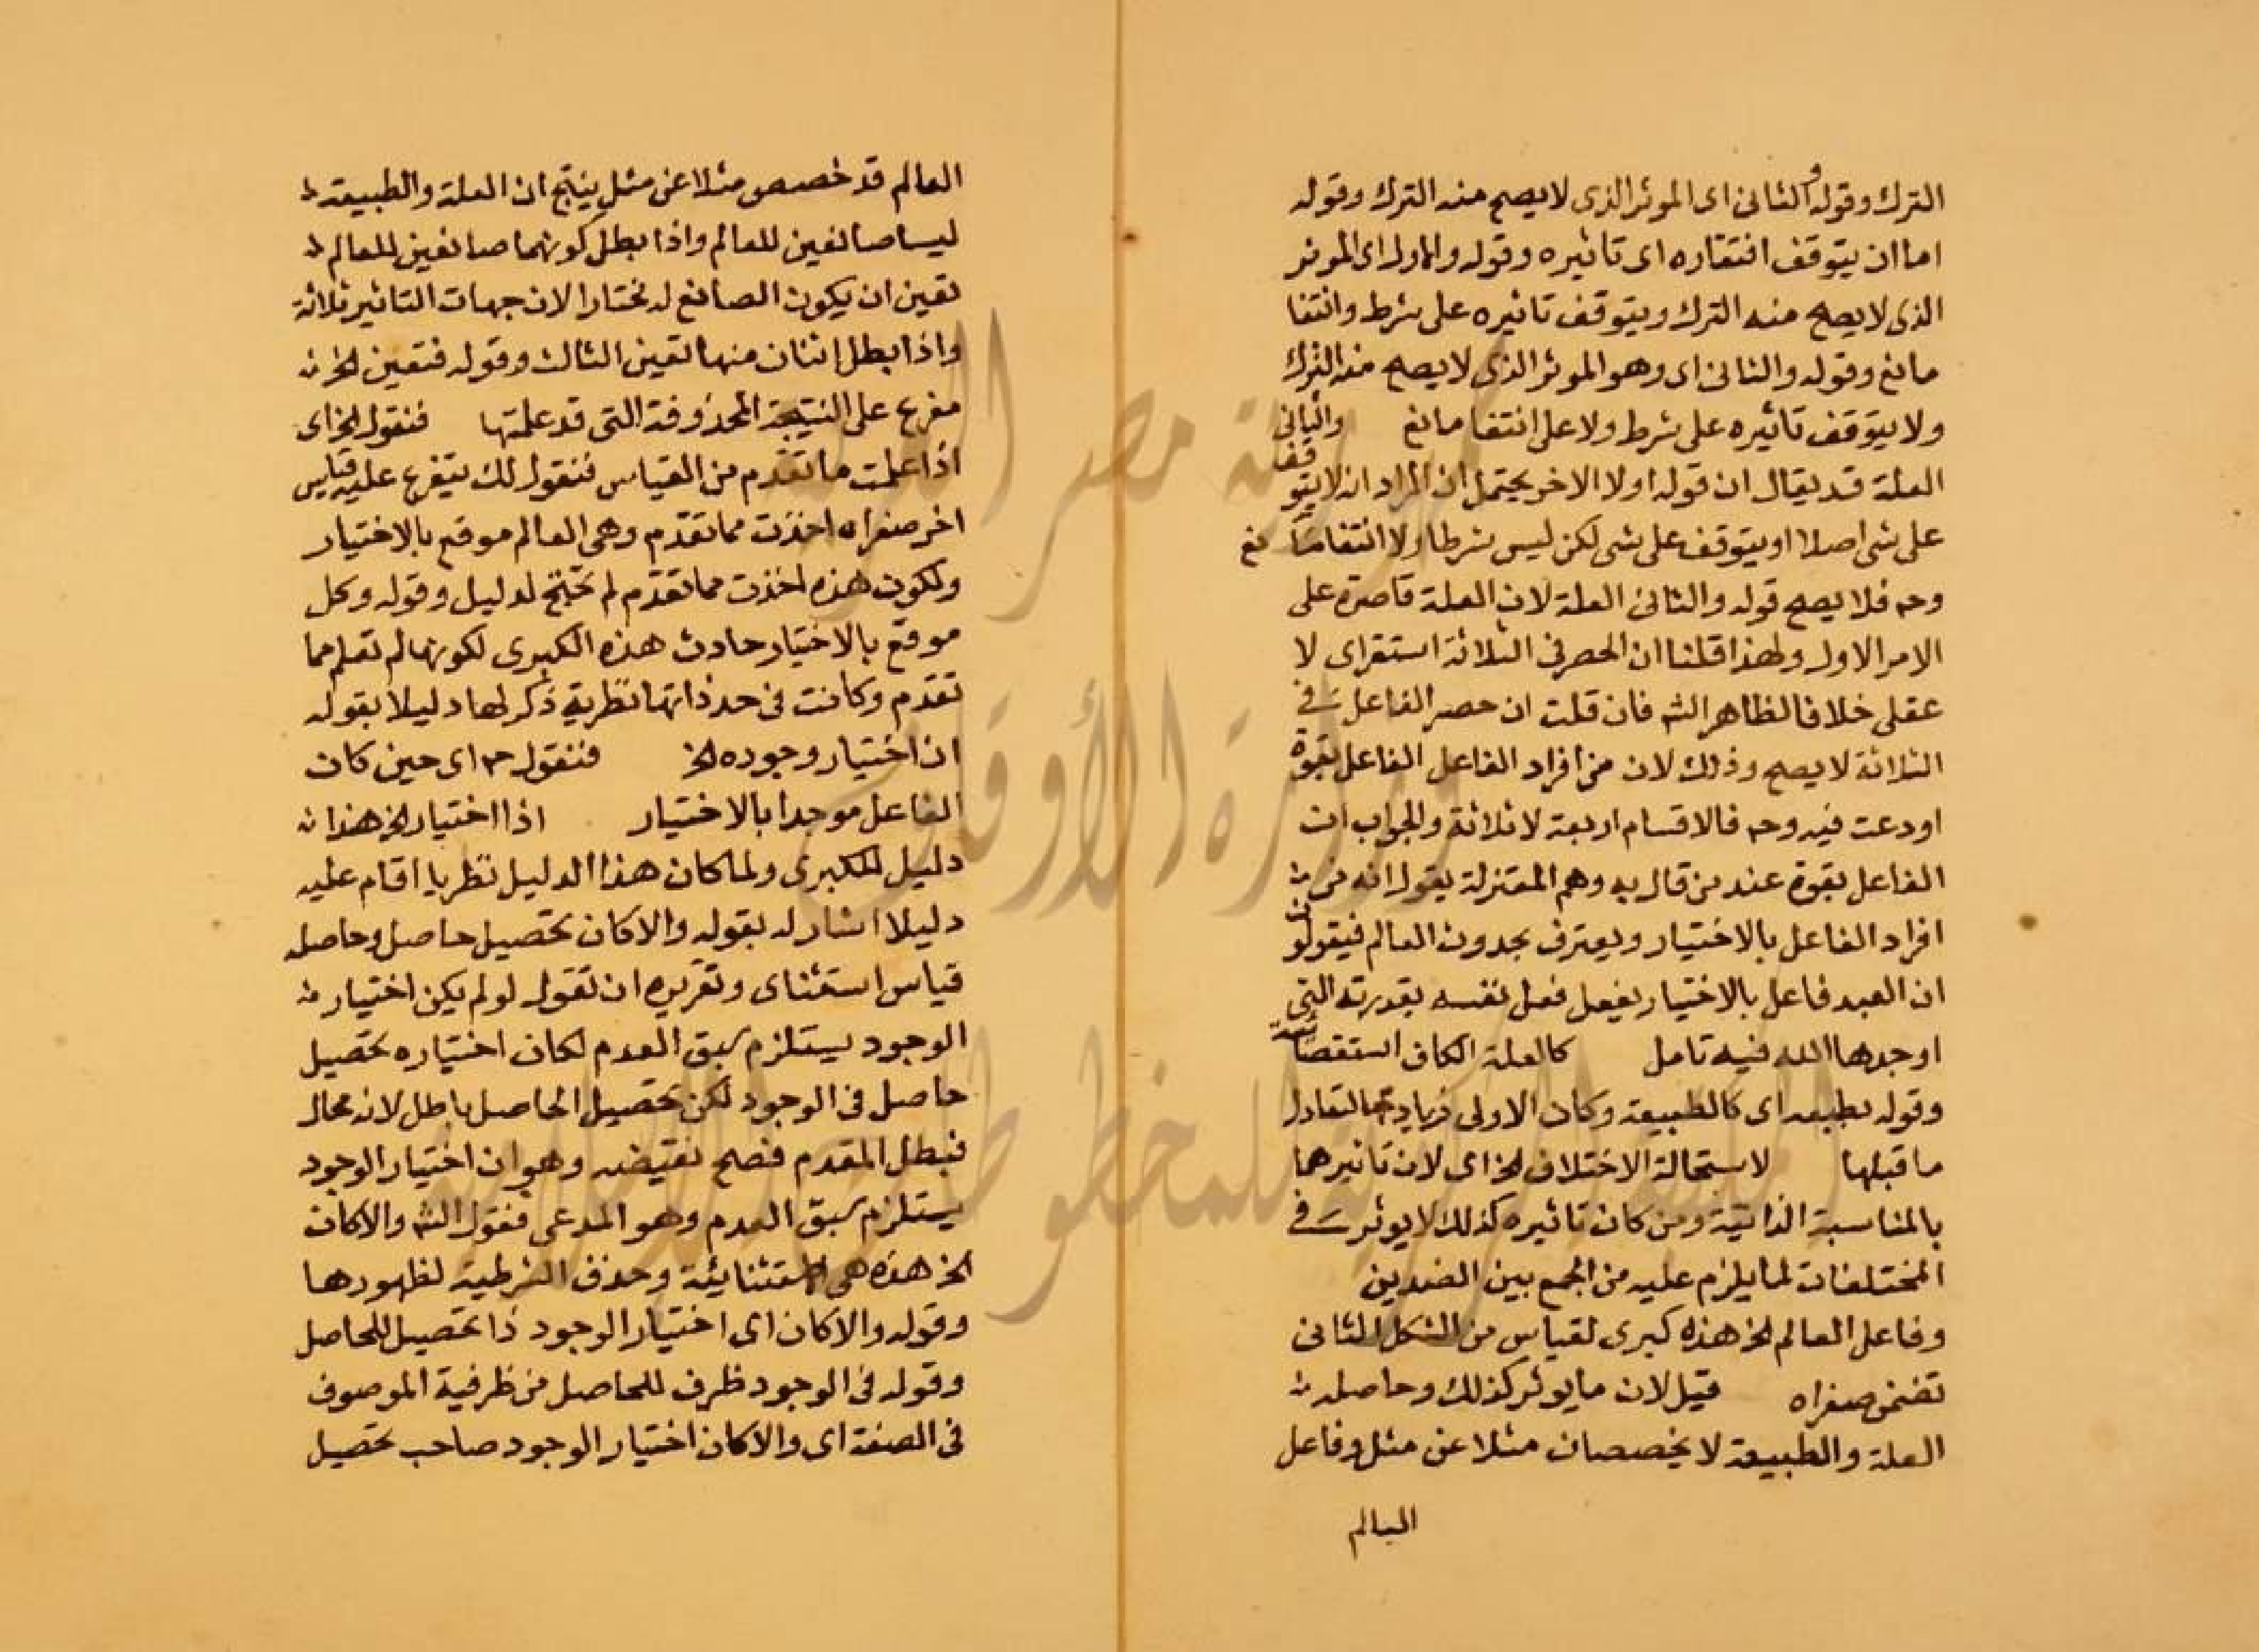 الترك وقوله والثانى اى الموثر الذى لا يصح منه الترك وقوله
اما ان يتوقف افتقاره اى تاثيره وقوله والاول اى الموثر
الذى لا يصح منه الترك ويتوقف تاثيره على شرط وانتفا
مانع وقوله والثانى اى وهو الموثر الذى لا يصح منه الترك
ولا يتوقف تاثيره على شرط ولا على انتفا مانع والثانى
العلة قد يقال ان قوله اولا الاخر يحتمل ان المراد انه لا يتوقف
على شى اصلا او يتوقف على شى لكن ليس شرطا ولا انتفا مانع
وح فلا يصح قوله والثانى العلة لان العلة قاصرة على
الامر الاول ولهذا قلنا ان الحصر فى الثلاثة استقراى لا
عقلى خلافا لظاهر الش فان قلت ان حصر الفاعل فى
الثلاثة لا يصح وذلك لان من افراد الفاعل الفاعل بقوة
اودعت فيه وح فالاقسام اربعة لا ثلاثة والجواب ان
الفاعل بقوة عند من قال به وهم المعتزلة يقول انه من
افراد الفاعل بالاختيار ويعترف بحدوث العالم فيقولون
ان العبد فاعل بالاختيار يفعل فعل نفسه بقدرته التى
اوجدها الله فيه تامل كالعلة الكاف استقصائية
وقوله بطبعه اى كالطبيعة وكان الاولى زيادتها لتعادل
ما قبلها لاستحالة الاختلاف الخ اى لان تاثيرهما
بالمناسبة الذاتية ومن كان تاثيره كذلك لا يوثر فى
المختلفات لما يلزم عليه من الجمع بين الضدين
وفاعل العالم الخ هذه كبرى لقياس من الشكل الثانى
تضمن صغراه قيل لان ما يوثر كذلك وحاصله
العلة والطبيعة لا يخصصان مثلا عن مثل وفاعل
العالم
العالم قد خصص مثلا عن مثل ينتج ان العلة والطبيعة
ليسا صانعين للعالم واذا بطل كونهما صانعين للعالم
تعين ان يكون الصانع له مختارا لان جهات التاثير ثلاثة
واذا بطل اثنان منها تعين الثالث وقوله فتعين الخ
مفرع على النتيجة المحذوفة التى قد علمتها فنقول الخ اى
اذا علمت ما تقدم من القياس فنقول لك يتفرع عليه قياس
اخر صغراه اخذت مما تقدم وهى العالم موقع بالاختيار
ولكون هذه اخذت مما تقدم لم تحتج لدليل وقوله وكل
موقع بالاختيار حادث هذه الكبرى لكونها لم تعلم مما
تقدم وكانت فى حد ذاتها نظرية ذكر لها دليلا بقوله
ان اختيار وجوده الخ فنقول ح اى حين كان
الفاعل موجدا بالاختيار اذا اختيار الخ هذا
دليل للكبرى ولما كان هذا الدليل نظريا اقام عليه
دليلا اشار له بقوله والا كان تحصيل حاصل وحاصله
قياس استثناى وتقريره ان تقول لو لم يكن اختيار
الوجود يستلزم سبق العدم لكان اختياره تحصيل
حاصل فى الوجود لكن تحصيل الحاصل باطل لانه محال
فبطل المقدم فصح نقيضه وهو ان اختيار الوجود
يستلزم سبق العدم وهو المدعى فقول الش والا كان
الخ هذه هى الاستثنائية وحذف الشرطية لظهورها
وقوله والا كان اى اختيار الوجود ذا تحصيل للحاصل
وقوله فى الوجود ظرف للحاصل من ظرفية الموصوف
فى الصفة اى والا كان اختيار الوجود صاحب تحصيل